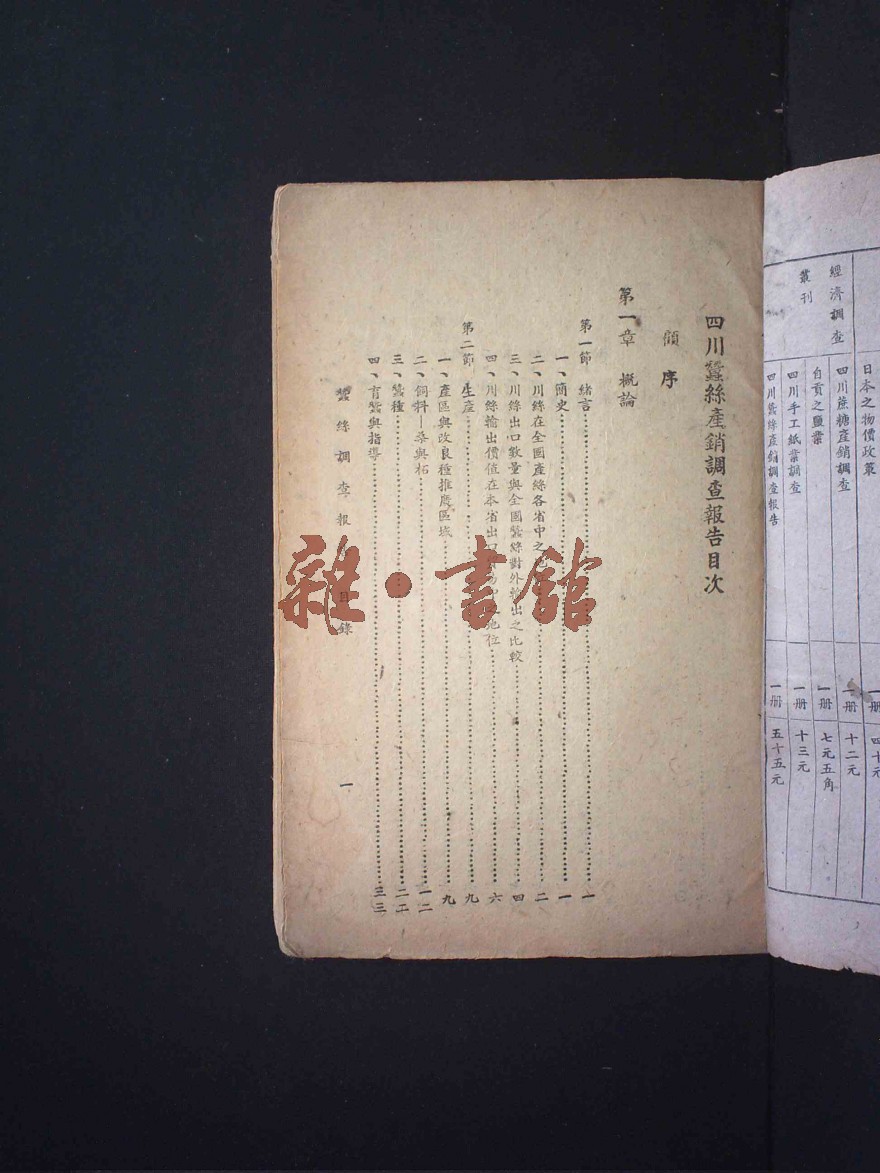 四川蠶絲產銷調查報告目次
顧序
第一章 概論
第一節 緒言 一
一、簡史 一
二、川絲在全國產絲各省中之 二
三、川絲出口數量與全國蠶絲對外輸出之比較 四
四、川絲輸出價值在本省出口 地位 六
第二節 生產 九
一、產區與改良種推廣區域 九
二、飼料—桑與柘 一二
三、蠶種 二二
四、育蠶與指導 三三
蠶絲調查報 目錄 一
雜·書館
日本之物價政策 一冊 四十元
經濟調查
叢刊
四川蔗糖產銷調查 一冊 十二元
自貢之鹽業 一冊 七元五角
四川手工紙業調查 一冊 十三元
四川蠶絲產銷調查報告 一冊 五十五元